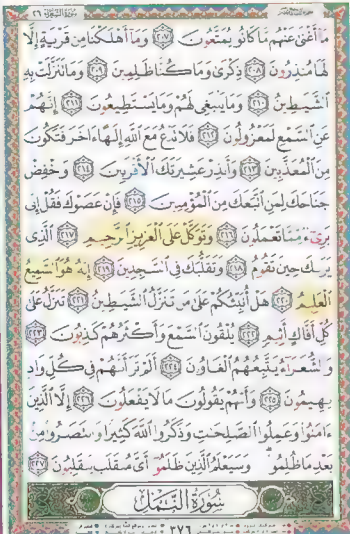 سورة الشعراء ٢٦
ما أغنى عنهم ما كانوا يمتعون ٢٠٧ وما أهلكنا من قرية إلا
لها منذرون ٢٠٨ ذكرى وما كنا ظلمين ٢٠٩ وما تنزلت به
الشيطين ٢١٠ وما ينبغى لهم وما يستطيعون ٢١١ إنهم
عن السمع لمعزولون ٢١٢ فلا تدع مع الله إلها ءاخر فتكون
من المعذبين ٢١٣ وأنذر عشيرتك الأقربين ٢١٤ وخفض
جناحك لمن اتبعك من المؤمنين ٢١٥ فإن عصوك فقل إنى
برىء مما تعملون ٢١٦ وتوكل على العزيز الرحيم ٢١٧ الذى
يرىك حين تقوم ٢١٨ وتقلبك فى السجدين ٢١٩ إنه هو السميع
العليم ٢٢٠ هل أنبئكم على من تنزل الشيطين ٢٢١ تنزل على
كل أفاك أثيم ٢٢٢ يلقون السمع وأكثرهم كذبون ٢٢٣
والشعراء يتبعهم الغاون ٢٢٤ ألم تر أنهم فى كل واد
يهيمون ٢٢٥ وأنهم يقولون ما لا يفعلون ٢٢٦ إلا الذين
ءامنوا وعملوا الصلحت وذكروا الله كثيرا وانتصروا من
بعد ما ظلموا وسيعلم الذين ظلموا أى منقلب ينقلبون ٢٢٧
سورة النمل
٣٧٦